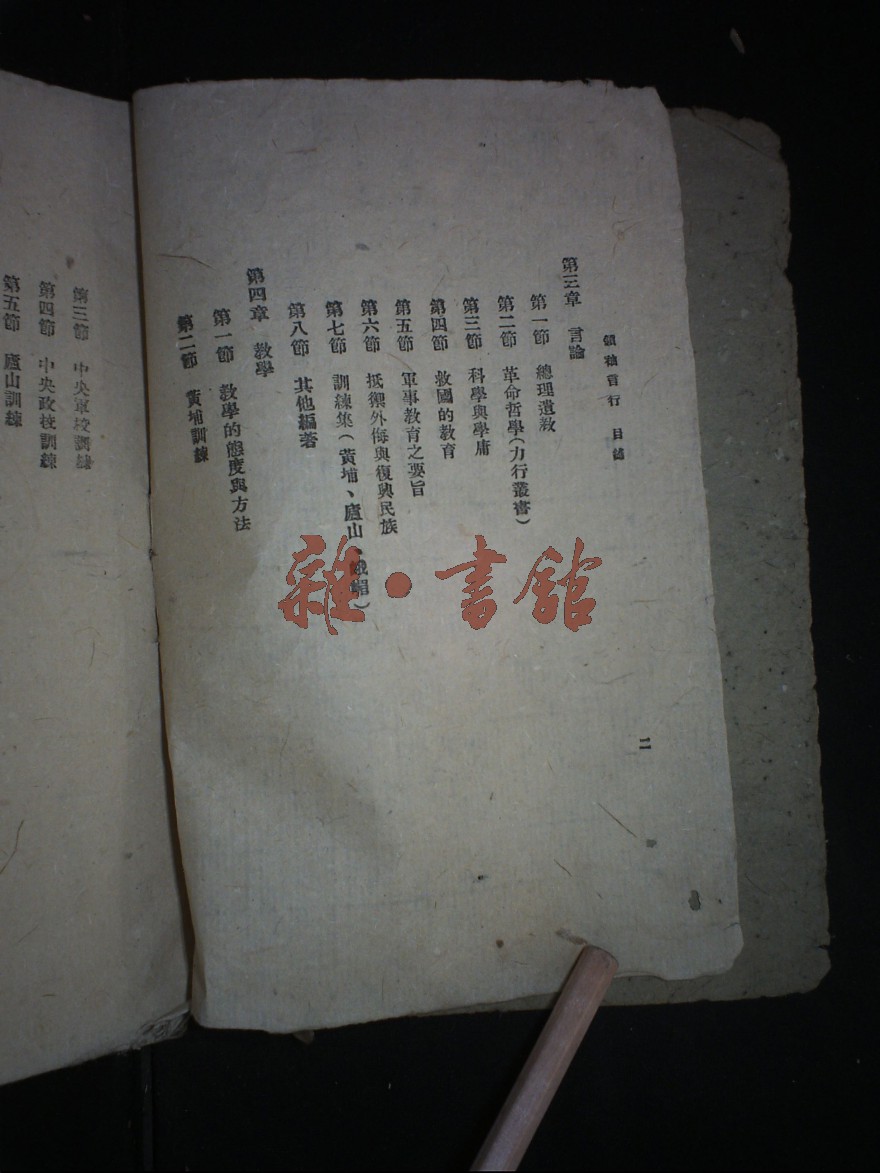 領袖言行　目錄
第三章　言論
第一節　總理遺教
第二節　革命哲學(力行叢書)
第三節　科學與學庸
第四節　救國的教育
第五節　軍事教育之要旨
第六節　抵禦外侮與復興民族
第七節　訓練集(黃埔、廬山、峨嵋)
第八節　其他編著
第四章　教學
第一節　教學的態度與方法
第二節　黃埔訓練
二
第三節　中央軍校訓練
第四節　中央政校訓練
第五節　廬山訓練
雜·書館